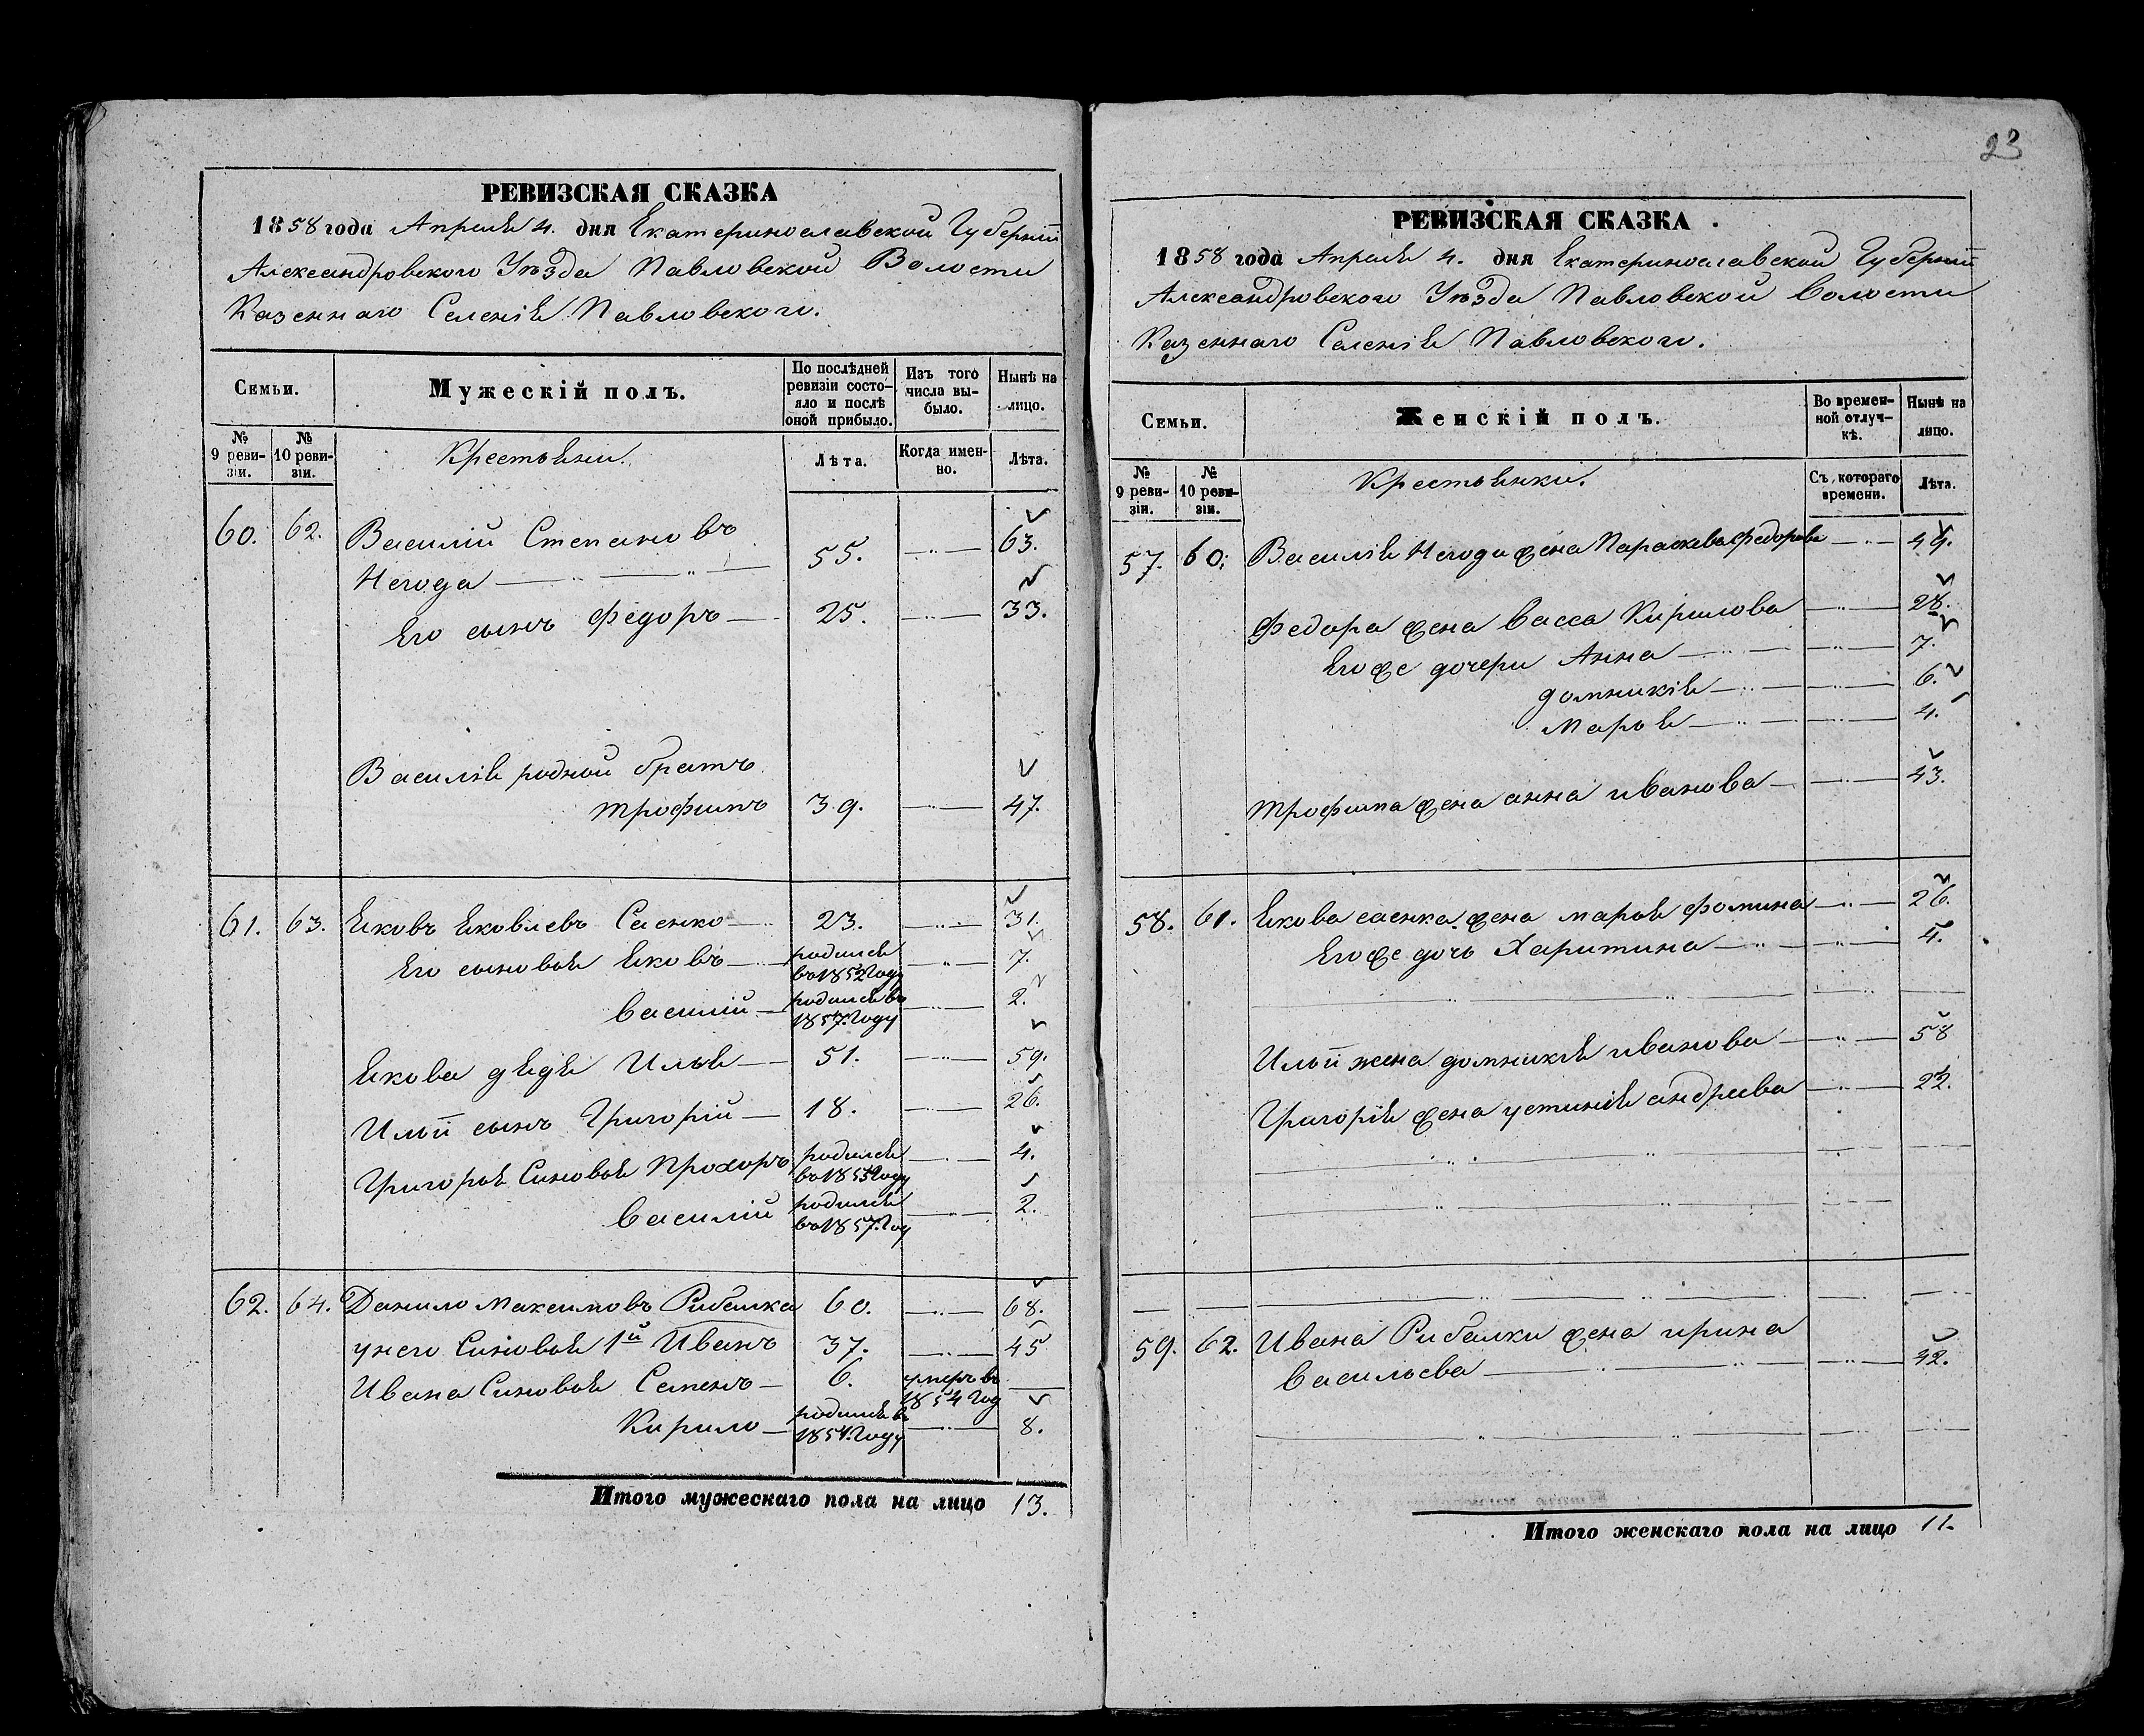 РЕВИЗСКАЯ СКАЗКА
1858 года Апреля 4. дня Екатеринославской Губернiи
Александровского Уѣзда Павловской Волости
Казеннаго Селенiя Павловского.
Семьи.
Мужескiй полъ.
По послѣдней ревизiи состояло и послѣ оной прибыло.
Изъ того числа выбыло.
Нынѣ на лицо.
№ 9 ревизiи.
№ 10 ревизiи.
Крестьяни.
Лѣта.
Когда именно.
Лѣта.
60. 62. Василiй Степановъ
Негода 55. 63.
Его сынъ Федоръ 25. 33.
Василiя родной братъ
трофимъ 39. 47.
61. 63. Яковъ Яковлевъ Саенко 23. 31.
Его сыновья Яковъ родился въ 1852 году 7.
Василiй родился въ 1857. году 2.
Якова дядя Илья 51. 59.
Ильи сынъ Григорiй 18. 26.
Григорья Синовья Прохоръ родился въ 1855 году 4.
Василiй родился въ 1857. год 2.
62. 64. Данило Максимовъ Рибалка 60. 68.
у него Синовья 1й Иванъ 37. 45
Ивана Синовья Семенъ 6. умеръ въ 1854 год
Кирило родился в 1851. году 8.
Итого мужескаго пола на лицо 13.
23
РЕВИЗСКАЯ СКАЗКА.
1858 года Апреля 4. дня Екатеринославской Губернiи
Александровского Уѣзда Павловской Волости
Казеннаго Селенiя Павловского.
Семьи.
Женскiй полъ.
Во временной отлучкѣ.
Нынѣ на лицо.
№ 9 ревизiи.
№ 10 ревизiи.
Крестьянки.
Съ котораго времени.
Лѣта.
57. 60. Василiя Негоди жена Параскева федорова 49.
Федора жена Васса Кирилова 28.
Его же дочери Анна 7.
домникiя 6.
Марья 4.
трофима жена анна иванова 43.
58. 61. Якова саенка жена марья фомина 26.
Его же дочь Харитина 4.
Ильи жена домникiя иванова 58
Григорiя жена устинiя андреева 22.
59. 62. Ивана Рибалки жена ирина
Васильева 42.
Итого женскаго пола на лицо 11.